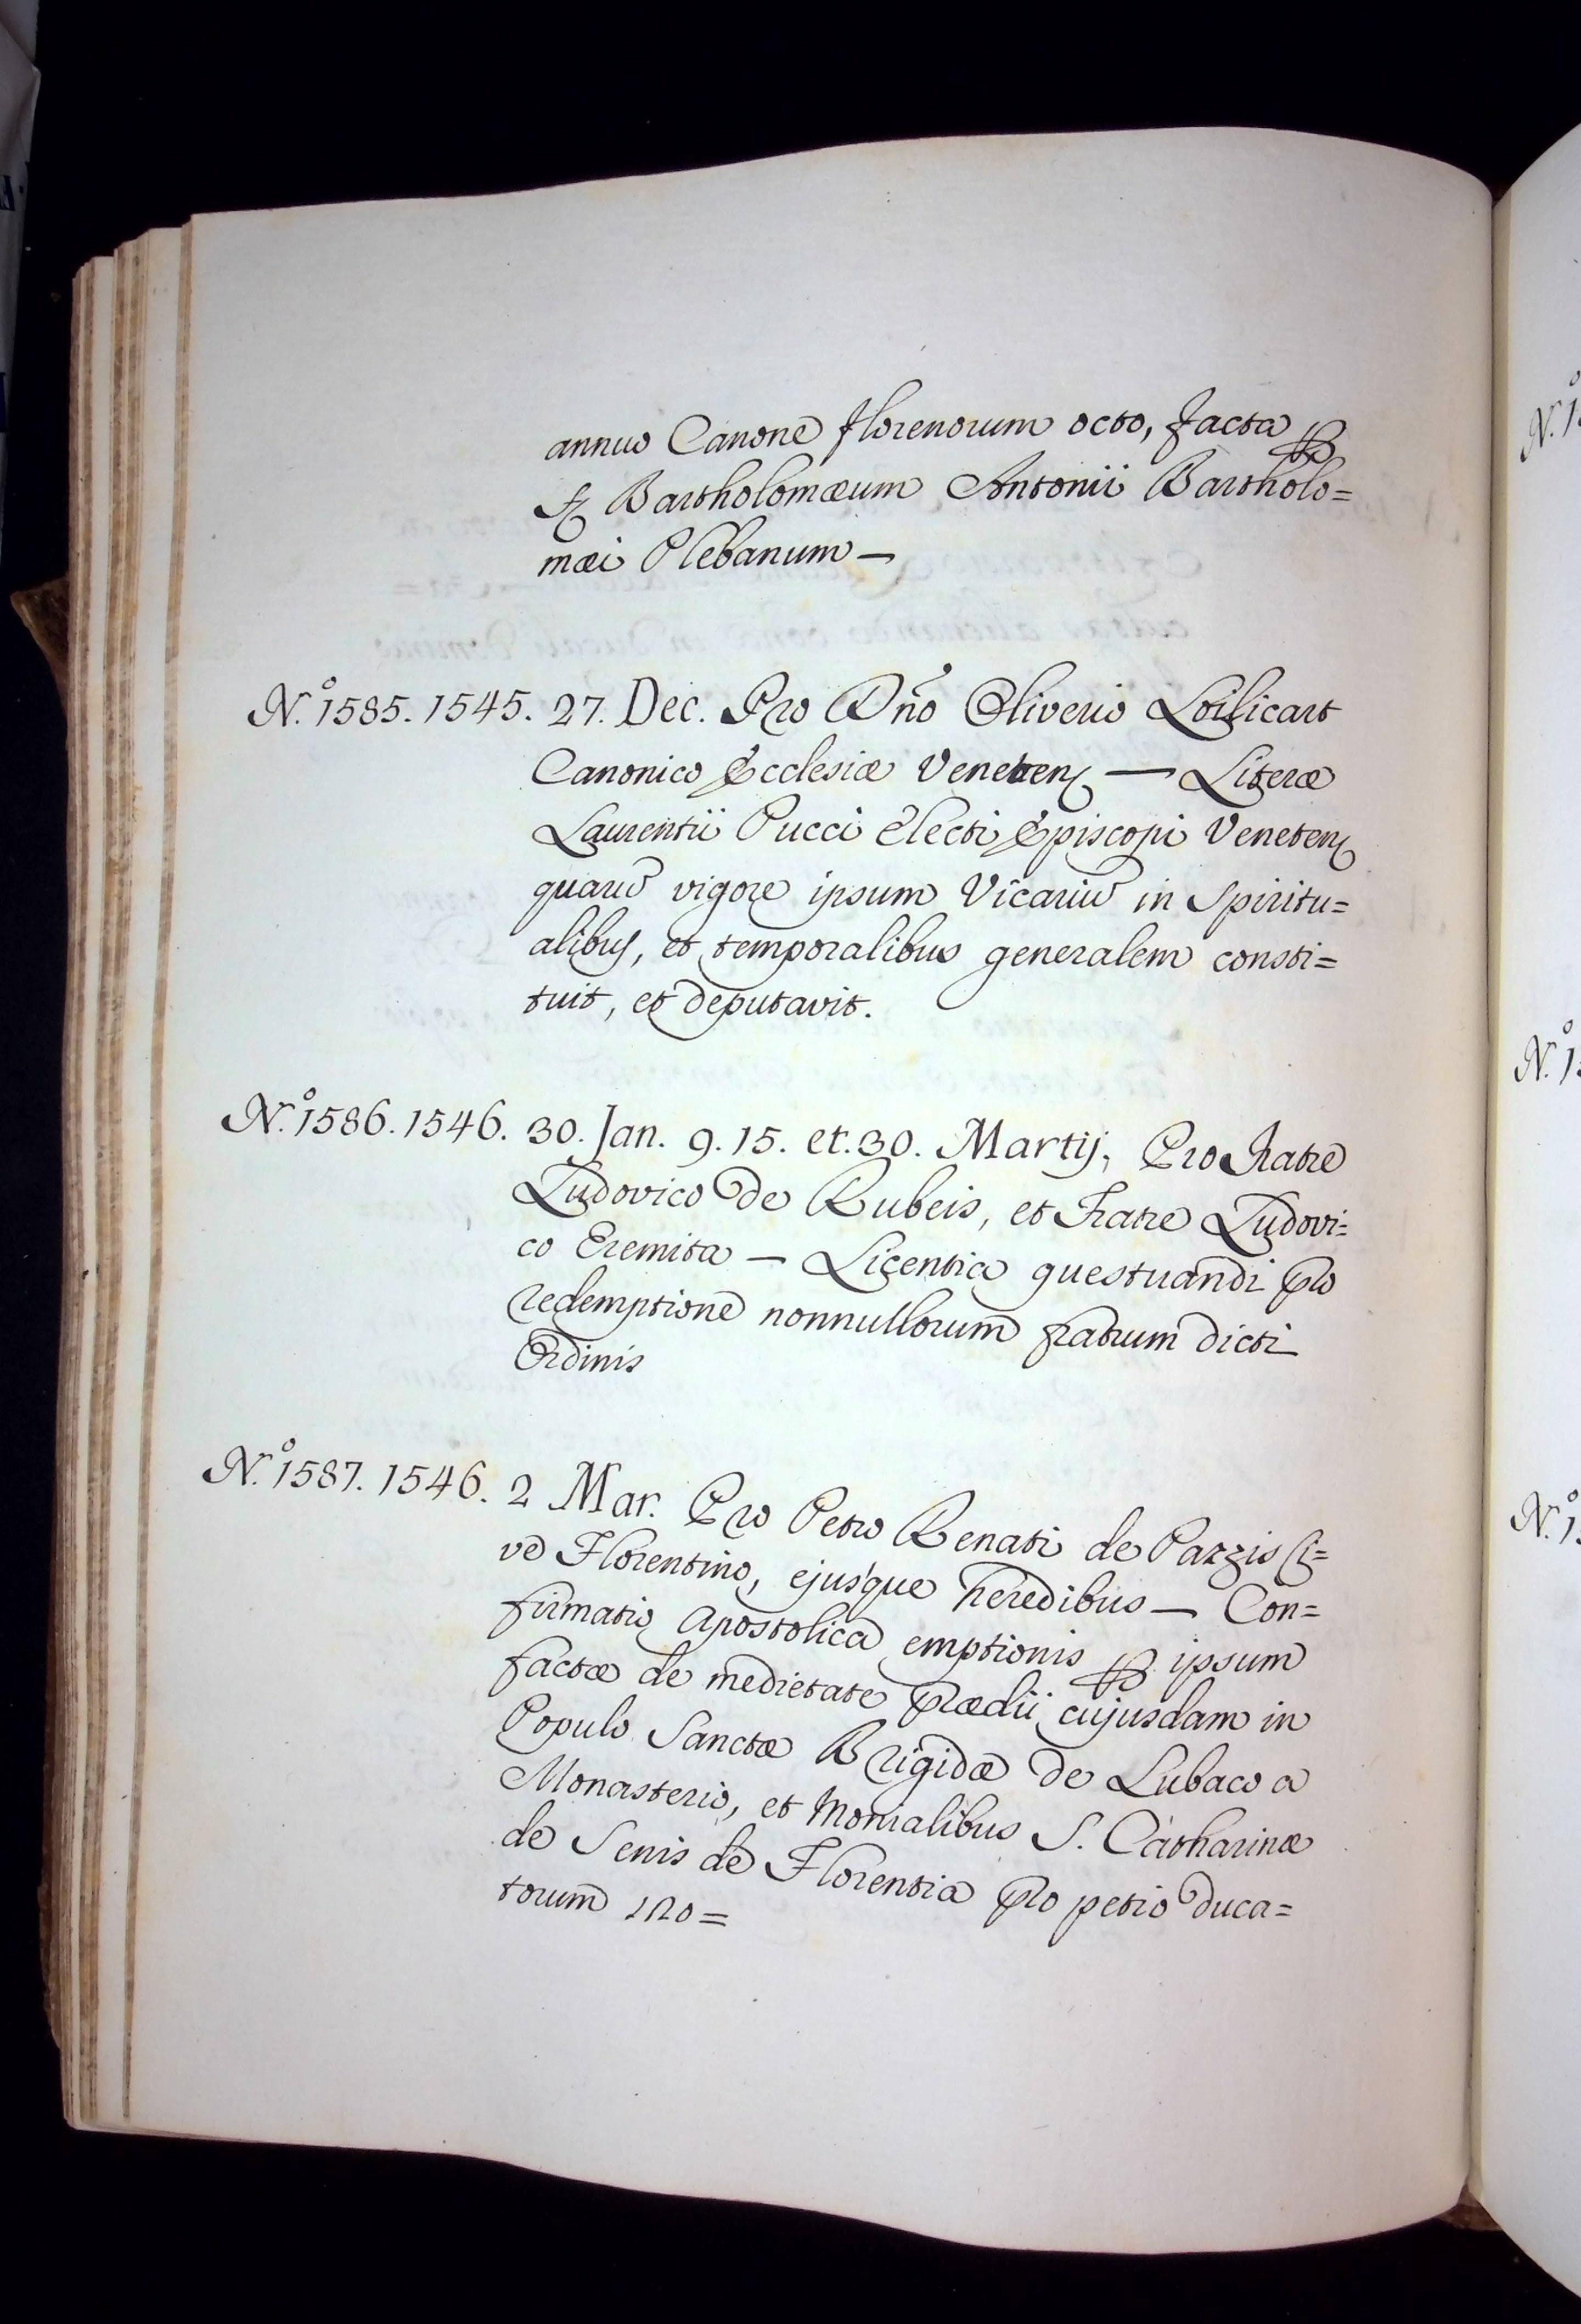 annuo Canone florenorum octo, facta per
Bartholomæum Antonii Bartholo=
mæi Plebanum —
N.º 1585. 1545. 27. Dec. Pro Dño Oliverio Loilicart
Canonico Ecclesiæ Veneten — Literæ
Laurentii Pucci Electi Episcopi Veneten
quarũ vigore ipsum Vicariũ in Spiritu=
alibus, et temporalibus generalem consti=
tuit, et deputavit.
N.º 1586. 1546. 30. Jan. 9. 15. et. 30. Martij, Pro Fratre
Ludovico de Rubeis, et Fratre Ludovi=
co Eremita — Licentia questuandi pro
redemptione nonnullorum fratrum dicti
Ordinis
N.º 1587. 1546. 2 Mar. Pro Petro Renati de Pazzis Ci=
ve Florentino, ejusque heredibus — Con=
firmatio Apostolica emptionis per ipsum
factæ de medietate prædii cujusdam in
Populo Sanctæ Brigidæ de Lubaco a
Monasterio, et Monialibus S. Catharinæ
de Senis de Florentia pro petio duca=
torum
N.º 1
N.º 1
N.º 1